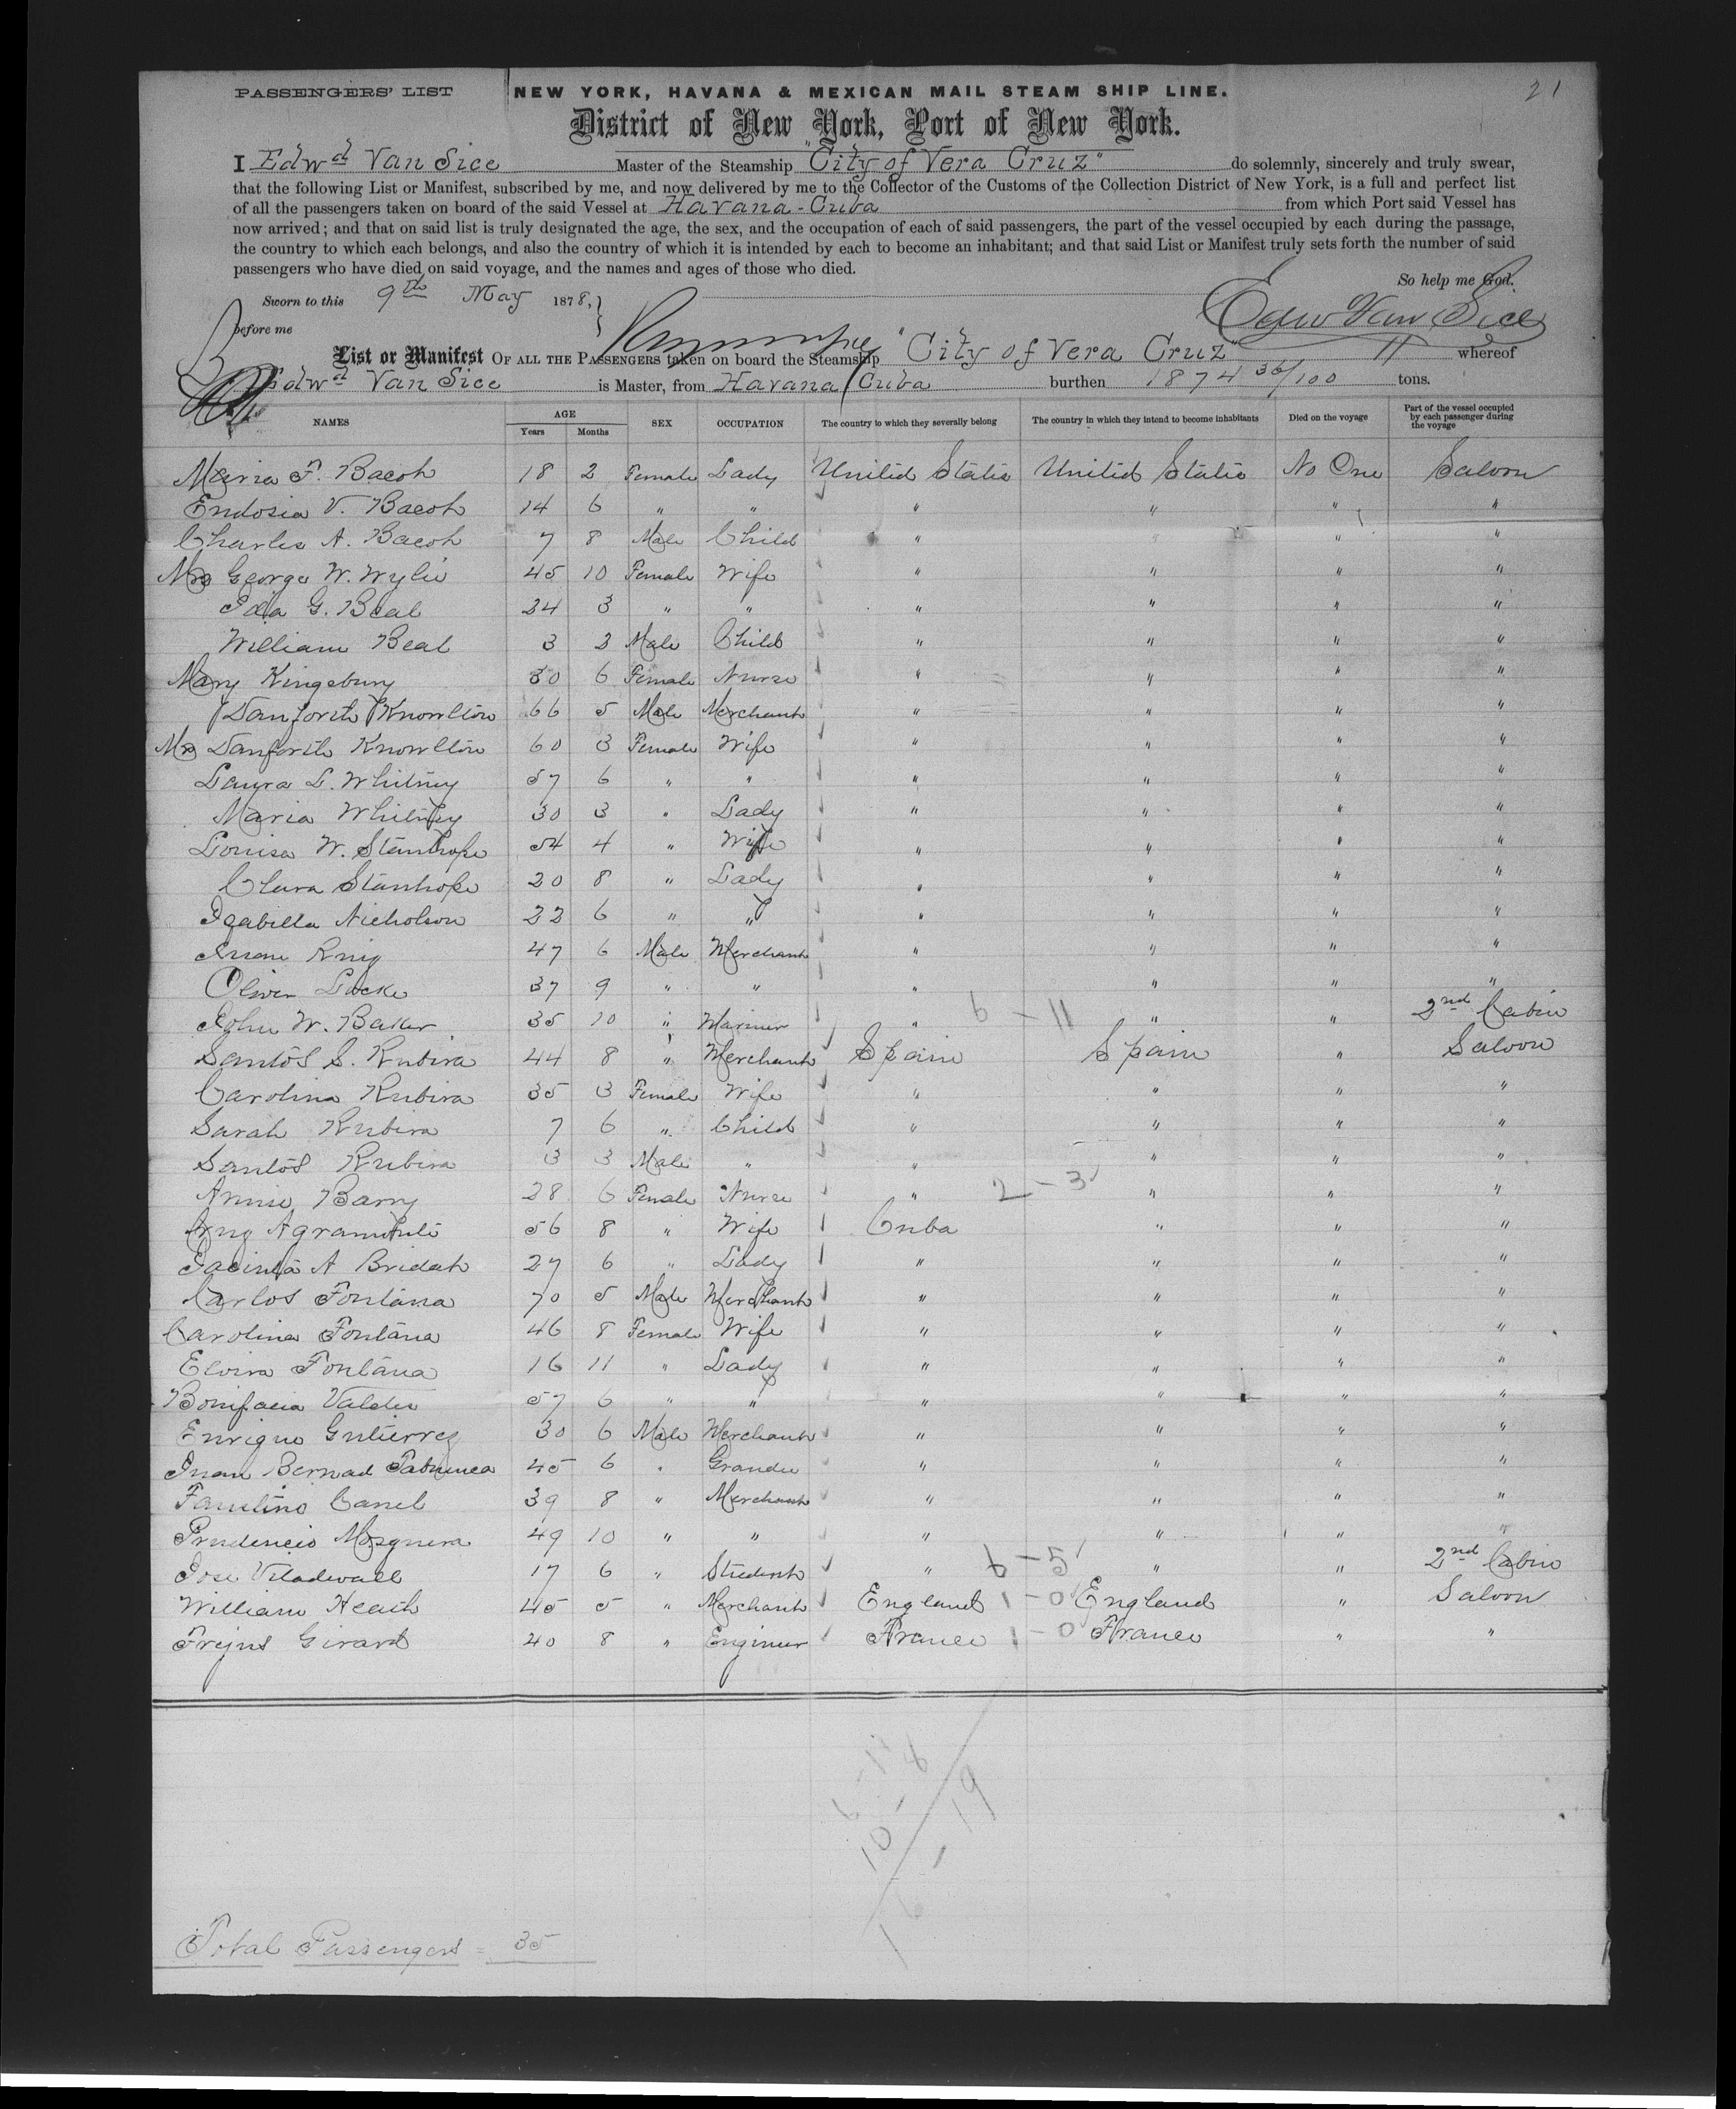 21
PASSENGERS' LIST NEW YORK, HAVANA & MEXICAN MAIL STEAM SHIP LINE.
District of New York, Port of New York.
I Edwd Van Sice Master of the Steamship "City of Vera Cruz" do solemnly, sincerely and truly swear,
that the following List or Manifest, subscribed by me, and now delivered by me to the Collector of the Customs of the Collection District of New York, is a full and perfect list
of all the passengers taken on board of the said Vessel at Havana - Cuba from which Port said Vessel has
now arrived; and that on said list is truly designated the age, the sex, and the occupation of each of said passengers, the part of the vessel occupied by each during the passage,
the country to which each belongs, and also the country of which it is intended by each to become an inhabitant; and that said List or Manifest truly sets forth the number of said
passengers who have died on said voyage, and the names and ages of those who died.
So help me God.
Sworn to this 9th May 1878,
before me Edwd Van Sice
List or Manifest OF ALL THE PASSENGERS taken on board the Steamship "City of Vera Cruz" whereof
Edwd Van Sice is Master, from Havana / Cuba burthen 1874 36/100 tons.
NAMES AGE Years Months SEX OCCUPATION The country to which they severally belong The country in which they intend to become inhabitants Died on the voyage Part of the vessel occupied by each passenger during the voyage
Maria F. Bacoh 18 2 Female Lady United States United States No One Saloon
Endosia V. Bacoh 14 6 " " " " " "
Charles A. Bacoh 7 8 Male Child " " " "
Mrs George W. Wylie 45 10 Female Wife " " " "
Ida G. Beal 24 3 " " " " " "
William Beal 3 2 Male Child " " " "
Mary Kingsbury 30 6 Female Nurse " " " "
Danforth Knowlton 66 5 Male Merchant " " " "
Mrs Danforth Knowlton 60 3 Female Wife " " " "
Laura L. Whitney 57 6 " " " " " "
Maria Whitney 30 3 " Lady " " " "
Louisa W. Stanhope 54 4 " Wife " " " "
Clara Stanhope 20 8 " Lady " " " "
Isabella Nicholson 22 6 " " " " " "
Juan Ruiz 47 6 Male Merchant " " " "
Oliver Locke 37 9 " " " " " "
John W. Baker 35 10 " Mariner " 6 - 11 " " 2nd Cabin
Santos S. Rubira 44 8 " Merchant Spain Spain " Saloon
Carolina Rubira 35 3 Female Wife " " " "
Sarah Rubira 7 6 " Child " " " "
Santos Rubira 3 3 Male " " " " "
Annie Barry 28 6 Female Nurse " 2 - 3 " " "
Agramonte 56 8 " Wife Cuba " " "
Jacinta A Bridat 27 6 " Lady " " " "
Carlos Fontana 70 5 Male Merchant " " " "
Carolina Fontana 46 8 Female Wife " " " "
Elvira Fontana 16 11 " Lady " " " "
Bonifacia Valdes 57 6 " " " " " "
Enrique Gutierrez 30 6 Male Merchant " " " "
Juan Bernad 45 6 " " " " "
Faustino Canel 39 8 " Merchant " " " "
Prudencio Mosquera 49 10 " " " " " "
Jose Viladwall 17 6 " Student " 6 - 5 " " 2nd Cabin
William Heath 45 5 " Merchant England 1 - 0 England " Saloon
Frejus Girard 40 8 " Engineer France 1 - 0 France " "
6 - 11
10 - 8
16 - 19
Total Passengers = 35